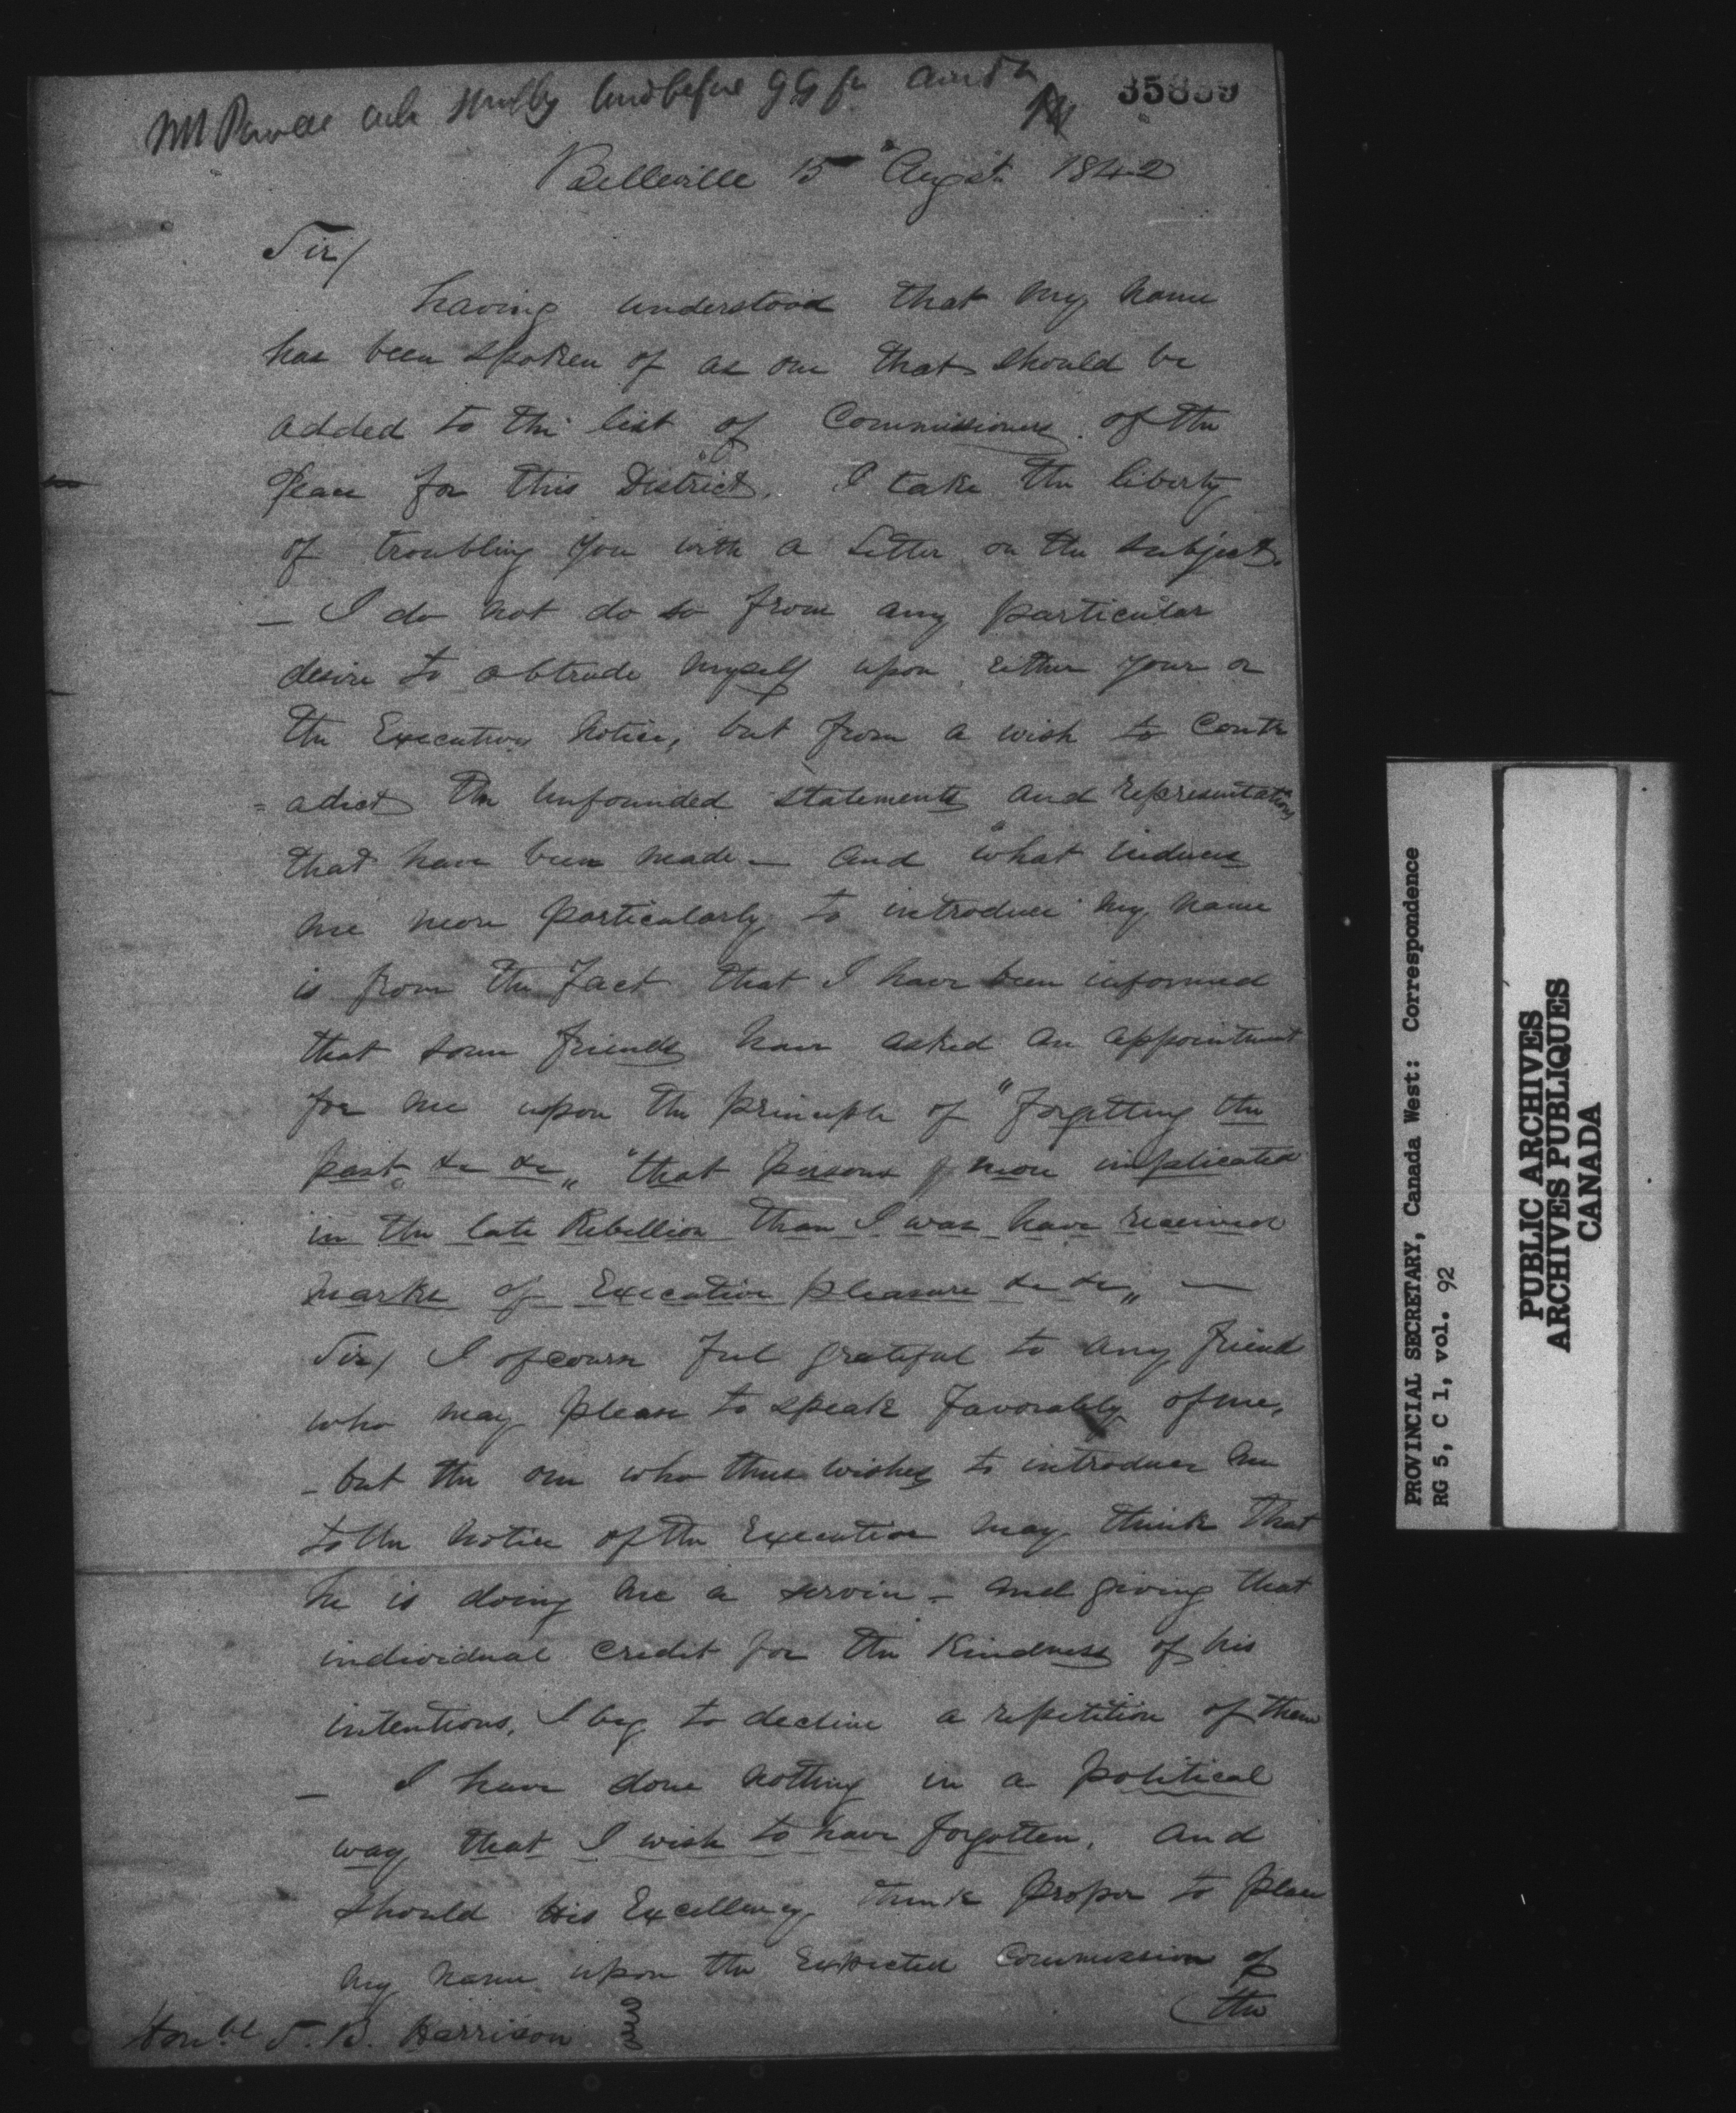 Mr Powell
35839
Belleville 15th Augst. 1842
Sir/
having understood that my name
has been spoken of as one that should be
added to the list of Commissioners of the
Peace for this District. I take the liberty
of troubling you with a Letter on the subject.
— I do not do so from any particular
desire to obtrude myself upon either your or
the Executives notice, but from a wish to Contr
= adict the unfounded statements and representations
that have been made — and what induces
me more particularly to introduce my name
is from the Fact that I have been informed
that some friends have asked an appointment
for me upon the principle of "Forgetting the
past, &c &c" "that persons more implicated
in the late Rebellion than I was have received
marks of Executive pleasure &c &c" —
Sir/ I ofcourse Feel grateful to any friend
who may please to speak favorably of me,
– but the one who thus wishes to introduce me
to the notice of the Executive may think that
he is doing me a service – and giving that
individual credit for the Kindness of his
intentions, I beg to decline a repetition of them
— I have done nothing in a political
way that I wish to have forgotten, and
should His Excellency think proper to place
my name upon the Expected Commission of
(the
Honble S. B. Harrison
PROVINCIAL SECRETARY, Canada West: Correspondence
RG 5, C 1, vol. 92
PUBLIC ARCHIVES
ARCHIVES PUBLIQUES
CANADA